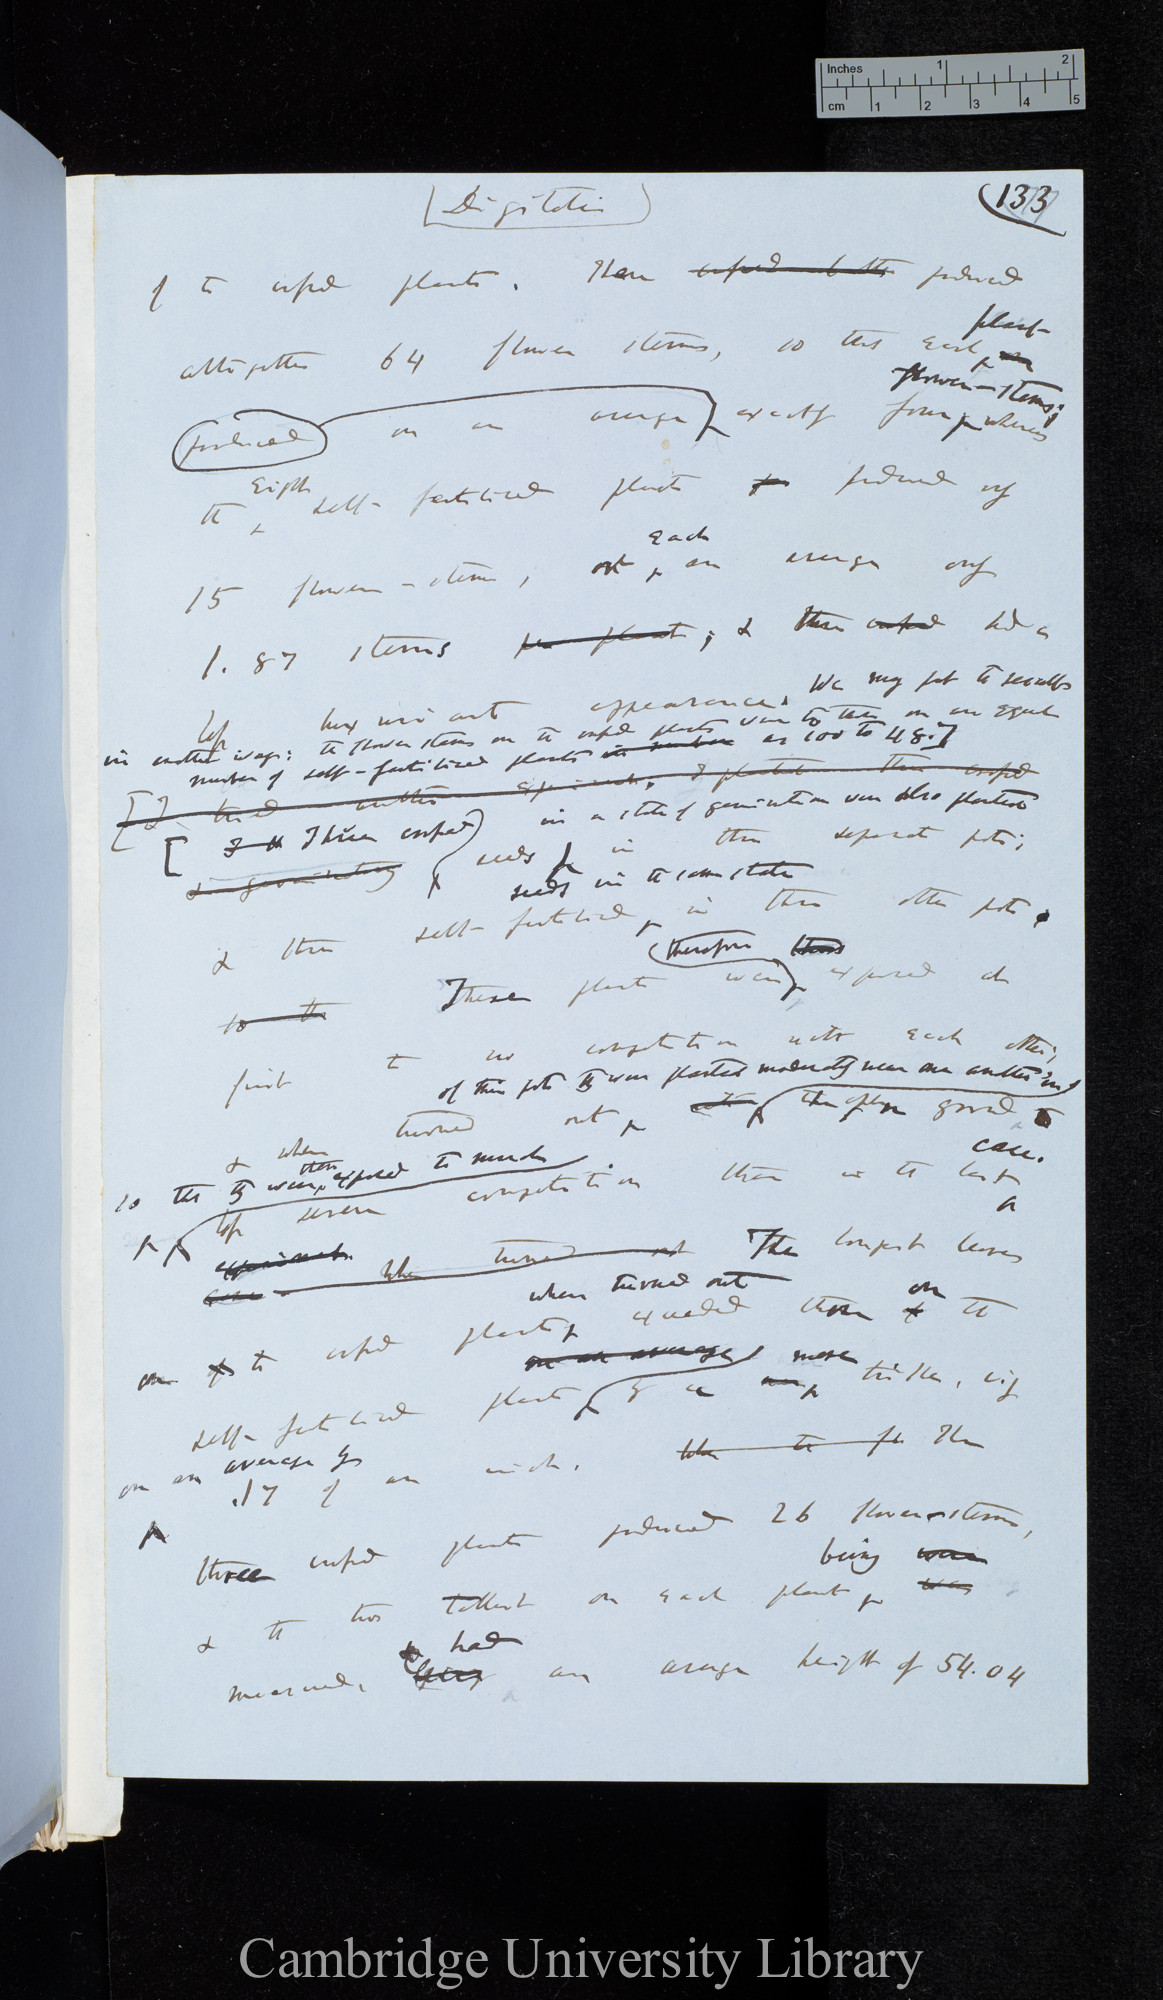 Inches 1 2
cm 1 2 3 4 5
(Digitalis)
133
of the crossed plants. These crossed produced
plant
altogether 64 flower stems, so that each
flower-stems;
produced on an average exactly four whereas
eight
the self-fertilised plants produced only
each
15 flower-stems, or on an average only
1.87 stems per plant; & these crossed had a
less luxuriant appearance. We may put the results
in another way: the flower stems on the crossed plants were to those on an equal
number of self-fertilised plants in number as 100 to 48.]
[I tried another experiment, & planted three crossed
[ Three crossed in a state of germination were also planted
& germinating seeds in three separate pots;
seeds in the same state
& three self-fertilised in three other pots.
therefore
to the These plants were exposed at
first to no competition with each other,
of their pots they were planted moderately near one another, and
& when turned out they often grow
case.
so that they were then exposed to much
less severe competition than in the last
experiment. when turned out The longest leaves
when turned out on
on the crossed plants exceeded those the
on an average more
self-fertilised plants by a trifle, viz
on an average by
.17 of an inch. The
three crossed plants produced 26 flower-stems,
being were
& the two tallest on each plant was
& had
measured, an average height of 54.04
Cambridge University Library